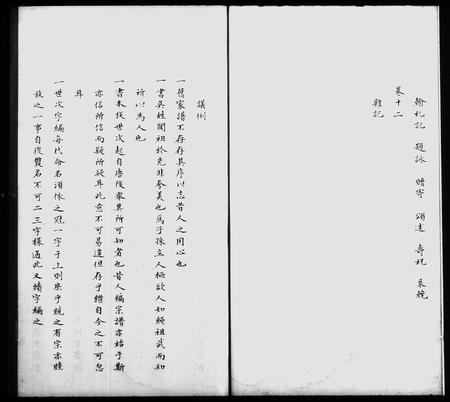 翰札記 題詠 贈寄 頌達 壽祝 哀輓
卷十二
雜記
議例
一舊家譜不存存其序以志昔人之用心也
一書吳姓開祖於先非夸美也為子孫立人極欲人知繩祖武而知
所以為人也
一書本族世次起自唐後舉其所可知者也昔人編宗譜亦始于斯
亦信所信而疑所疑耳此意不可易違但存乎繼自今之不可忽
耳
一世次字編每代命名須依之冠一字于上則秩乎統之有宗亦睦
族之一事自後雙名不可二三字樣過此又續字編之